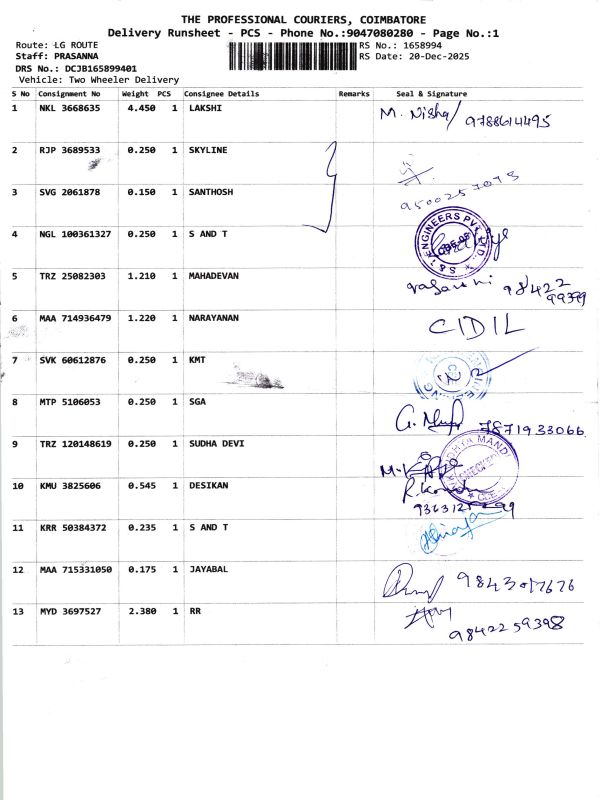 THE PROFESSIONAL COURIERS, COIMBATORE
Delivery Runsheet - PCS - Phone No.:9047080280 - Page No.:1
Route: LG ROUTE RS No.: 1658994
Staff: PRASANNA RS Date: 20-Dec-2025
DRS No.: DCJB165899401
Vehicle: Two Wheeler Delivery
S No Consignment No Weight PCS Consignee Details Remarks Seal & Signature
1 NKL 3668635 4.450 1 LAKSHI M. Nisha/ 9788614495
2 RJP 3689533 0.250 1 SKYLINE
3 SVG 2061878 0.150 1 SANTHOSH 9500257073
4 NGL 100361327 0.250 1 S AND T ENGINEERS PVT. LTD.
5 TRZ 25082303 1.210 1 MAHADEVAN 98422 99399
6 MAA 714936479 1.220 1 NARAYANAN CIDIL
7 SVK 60612876 0.250 1 KMT
8 MTP 5106053 0.250 1 SGA 7871933066
9 TRZ 120148619 0.250 1 SUDHA DEVI
10 KMU 3825606 0.545 1 DESIKAN
11 KRR 50384372 0.235 1 S AND T
12 MAA 715331050 0.175 1 JAYABAL
13 MYD 3697527 2.380 1 RR 9842259398